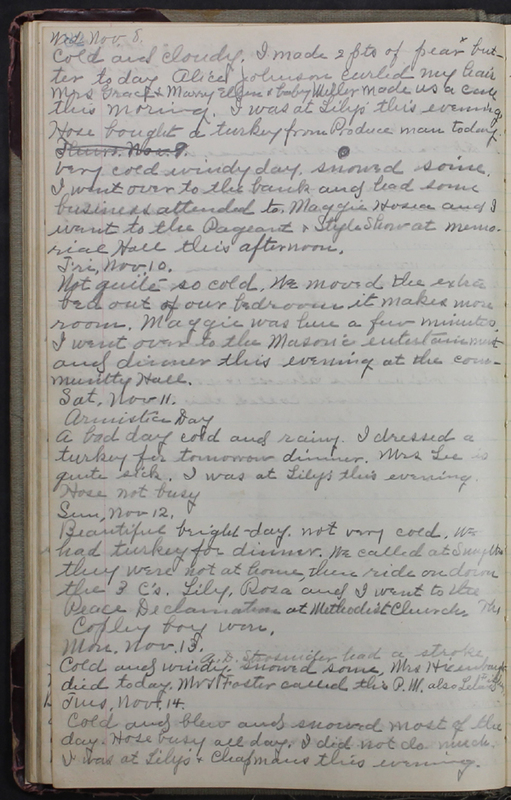 Wed. Nov. 8.
Cold and cloudy. I made 2 pts of pear but-
ter today Alice Johnson curled my hair
Mrs Grace & Mary Elgin & baby Miller made us a call
this moring. I was at Lilys this evening
Hose bought a turkey from Produce man today.
Thurs. Nov. 9.
Very cold windy day. snowed some.
I went over to the bank and had some
business attended to. Maggie Hosea and I
went to the Pageant & Style Show at memo-
rial Hall this afternoon.
Fri, Nov. 10.
Not quite so cold. We moved the extra
bed out of our bedroom it makes more
room. Maggie was here a few minutes.
I went over to the Masonic entertainment
and dinner this evening at the com-
munity Hall.
Sat, Nov 11.
Armistice Day
A bad day cold and rainy. I dressed a
turkey for tomorrow dinner. Mrs Lee is
quite sick. I was at Lily's this evening.
Hose not busy
Sun, Nov 12.
Beautiful bright day. not very cold. We
had turkey for dinner. We called at
they were not at home, then ride on down
the 3 C's. Lily, Rosa and I went to the
Peace Declamation at Methodist Church. The
Copley boy won.
Mon. Nov. 13.
had a stroke
Cold and windy, snowed some, Mrs
died today. Mrs Foster called this P.M. also
Tues, Nov. 14.
Cold and blew and snowed most of the
day. Hose busy all day. I did not do much.
I was at Lily's & Chapmans this evening.